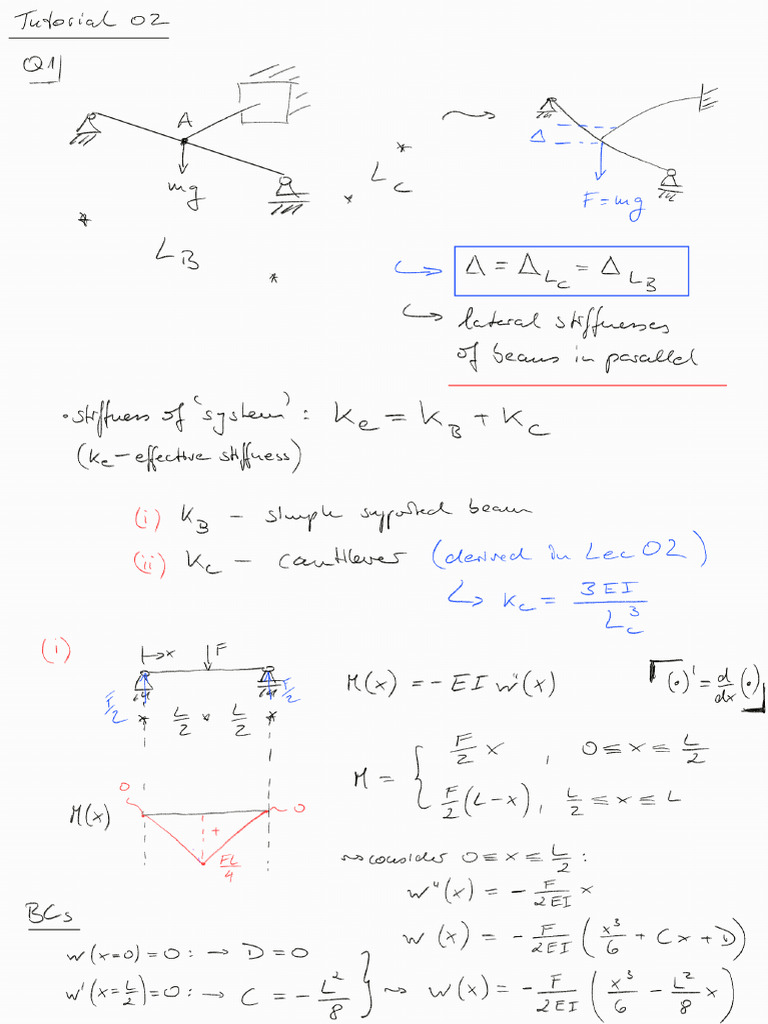 Tutorial 02
Q1)
A
mg
L_B
L_C
Δ
F = mg
Δ = Δ_{L_C} = Δ_{L_B}
lateral stiffnesses
of beams in parallel
• stiffness of 'system': k_e = k_B + k_C
(k_e – effective stiffness)
(i) k_B – simple supported beam
(ii) k_C – cantilever (derived in Lec 02)
↳ k_C = 3EI / L_C^3
(i)
x
F
F/2 F/2
L/2 L/2
M(x) = – EI w''(x)
(∘)' = d/dx (∘)
M = { F/2 x , 0 ≤ x ≤ L/2
F/2 (L–x) , L/2 ≤ x ≤ L
0 0
M(x)
+
FL/4
~ consider 0 ≤ x ≤ L/2 :
w''(x) = – F/2EI x
w(x) = – F/2EI ( x^3/6 + Cx + D )
BCs
w(x=0) = 0 : → D = 0
w'(x=L/2) = 0 : → C = – L^2/8
} ~> w(x) = – F/2EI ( x^3/6 – L^2/8 x )